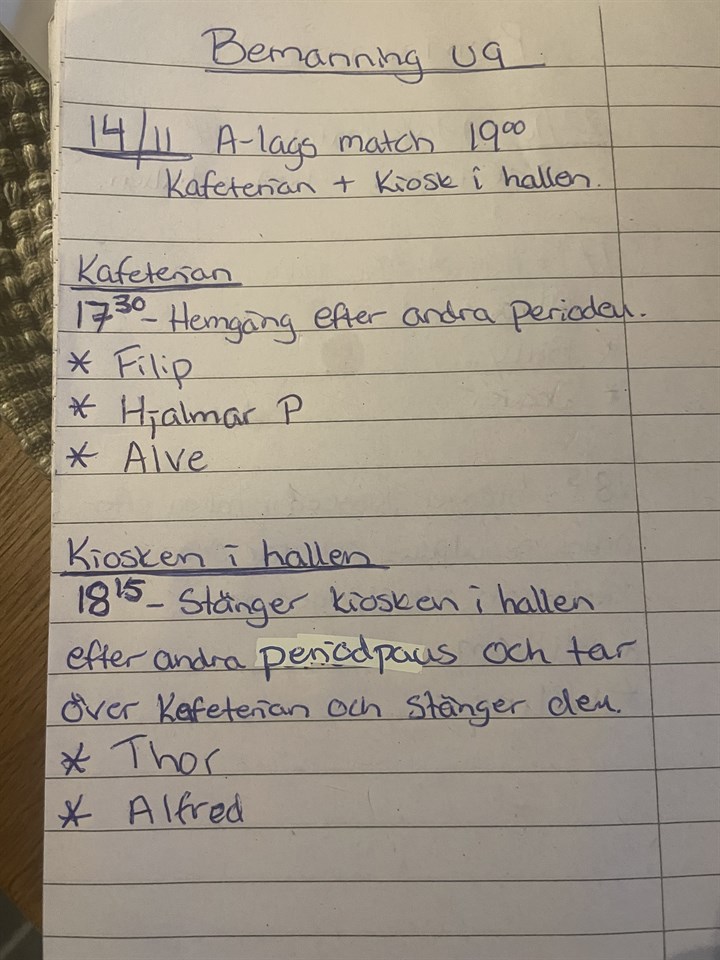 Bemanning U9
14/11 A-lags match 19⁰⁰
Kafeterian + Kiosk i hallen.
Kafeterian
17³⁰- Hemgång efter andra perioden.
* Filip
* Hjalmar P
* Alve
Kiosken i hallen
18¹⁵- Stänger kiosken i hallen
efter andra periodpaus och tar
över Kafeterian och stänger den.
* Thor
* Alfred